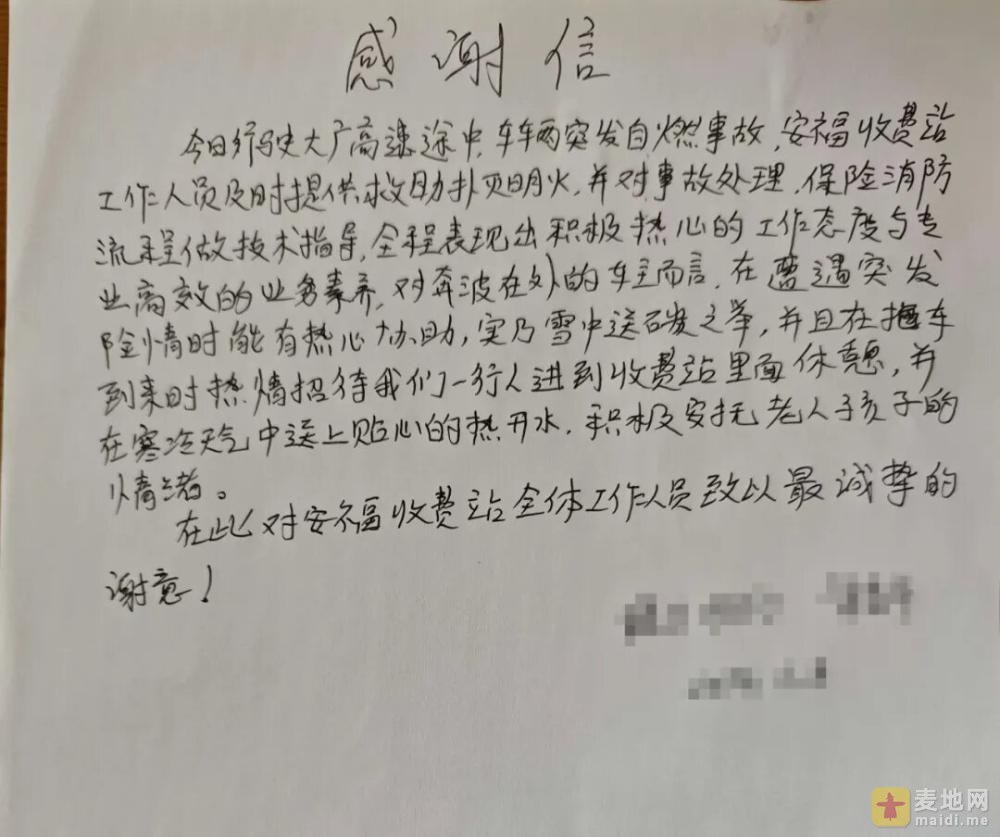 感谢信
今日行驶大广高速途中,车辆突发自燃事故,安福收费站
工作人员及时提供救助扑灭明火,并对事故处理,保险消防
流程做技术指导,全程表现出积极热心的工作态度与专
业高效的业务素养,对奔波在外的车主而言,在遭遇突发
险情时能有热心协助,实乃雪中送碳之举,并且在拖车
到来时热情招待我们一行人进到收费站里面休憩,并
在寒冷天气中送上贴心的热开水,积极安抚老人孩子的
情绪。
在此对安福收费站全体工作人员致以最诚挚的
谢意!
麦地网
maidi.me